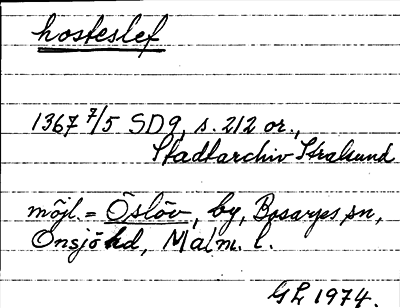 hosteslef
1367 7/5 SD9, s. 212 or.,
Stadtarchiv Stralsund
möjl. = Öslöv, by, Bosarps sn,
Onsjö hd, Malm. l.
GL 1974.